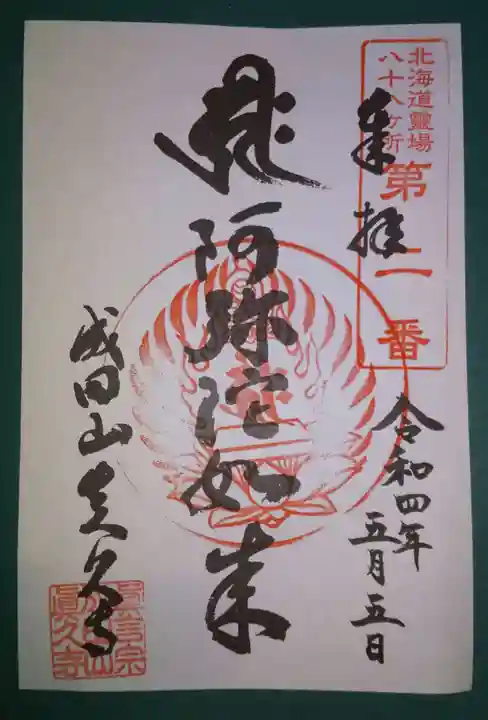 北海道靈場
八十八ヶ所
第二番
奉拝
令和四年
五月五日
阿弥陀如来
成田山真久寺
眞言宗
眞久寺